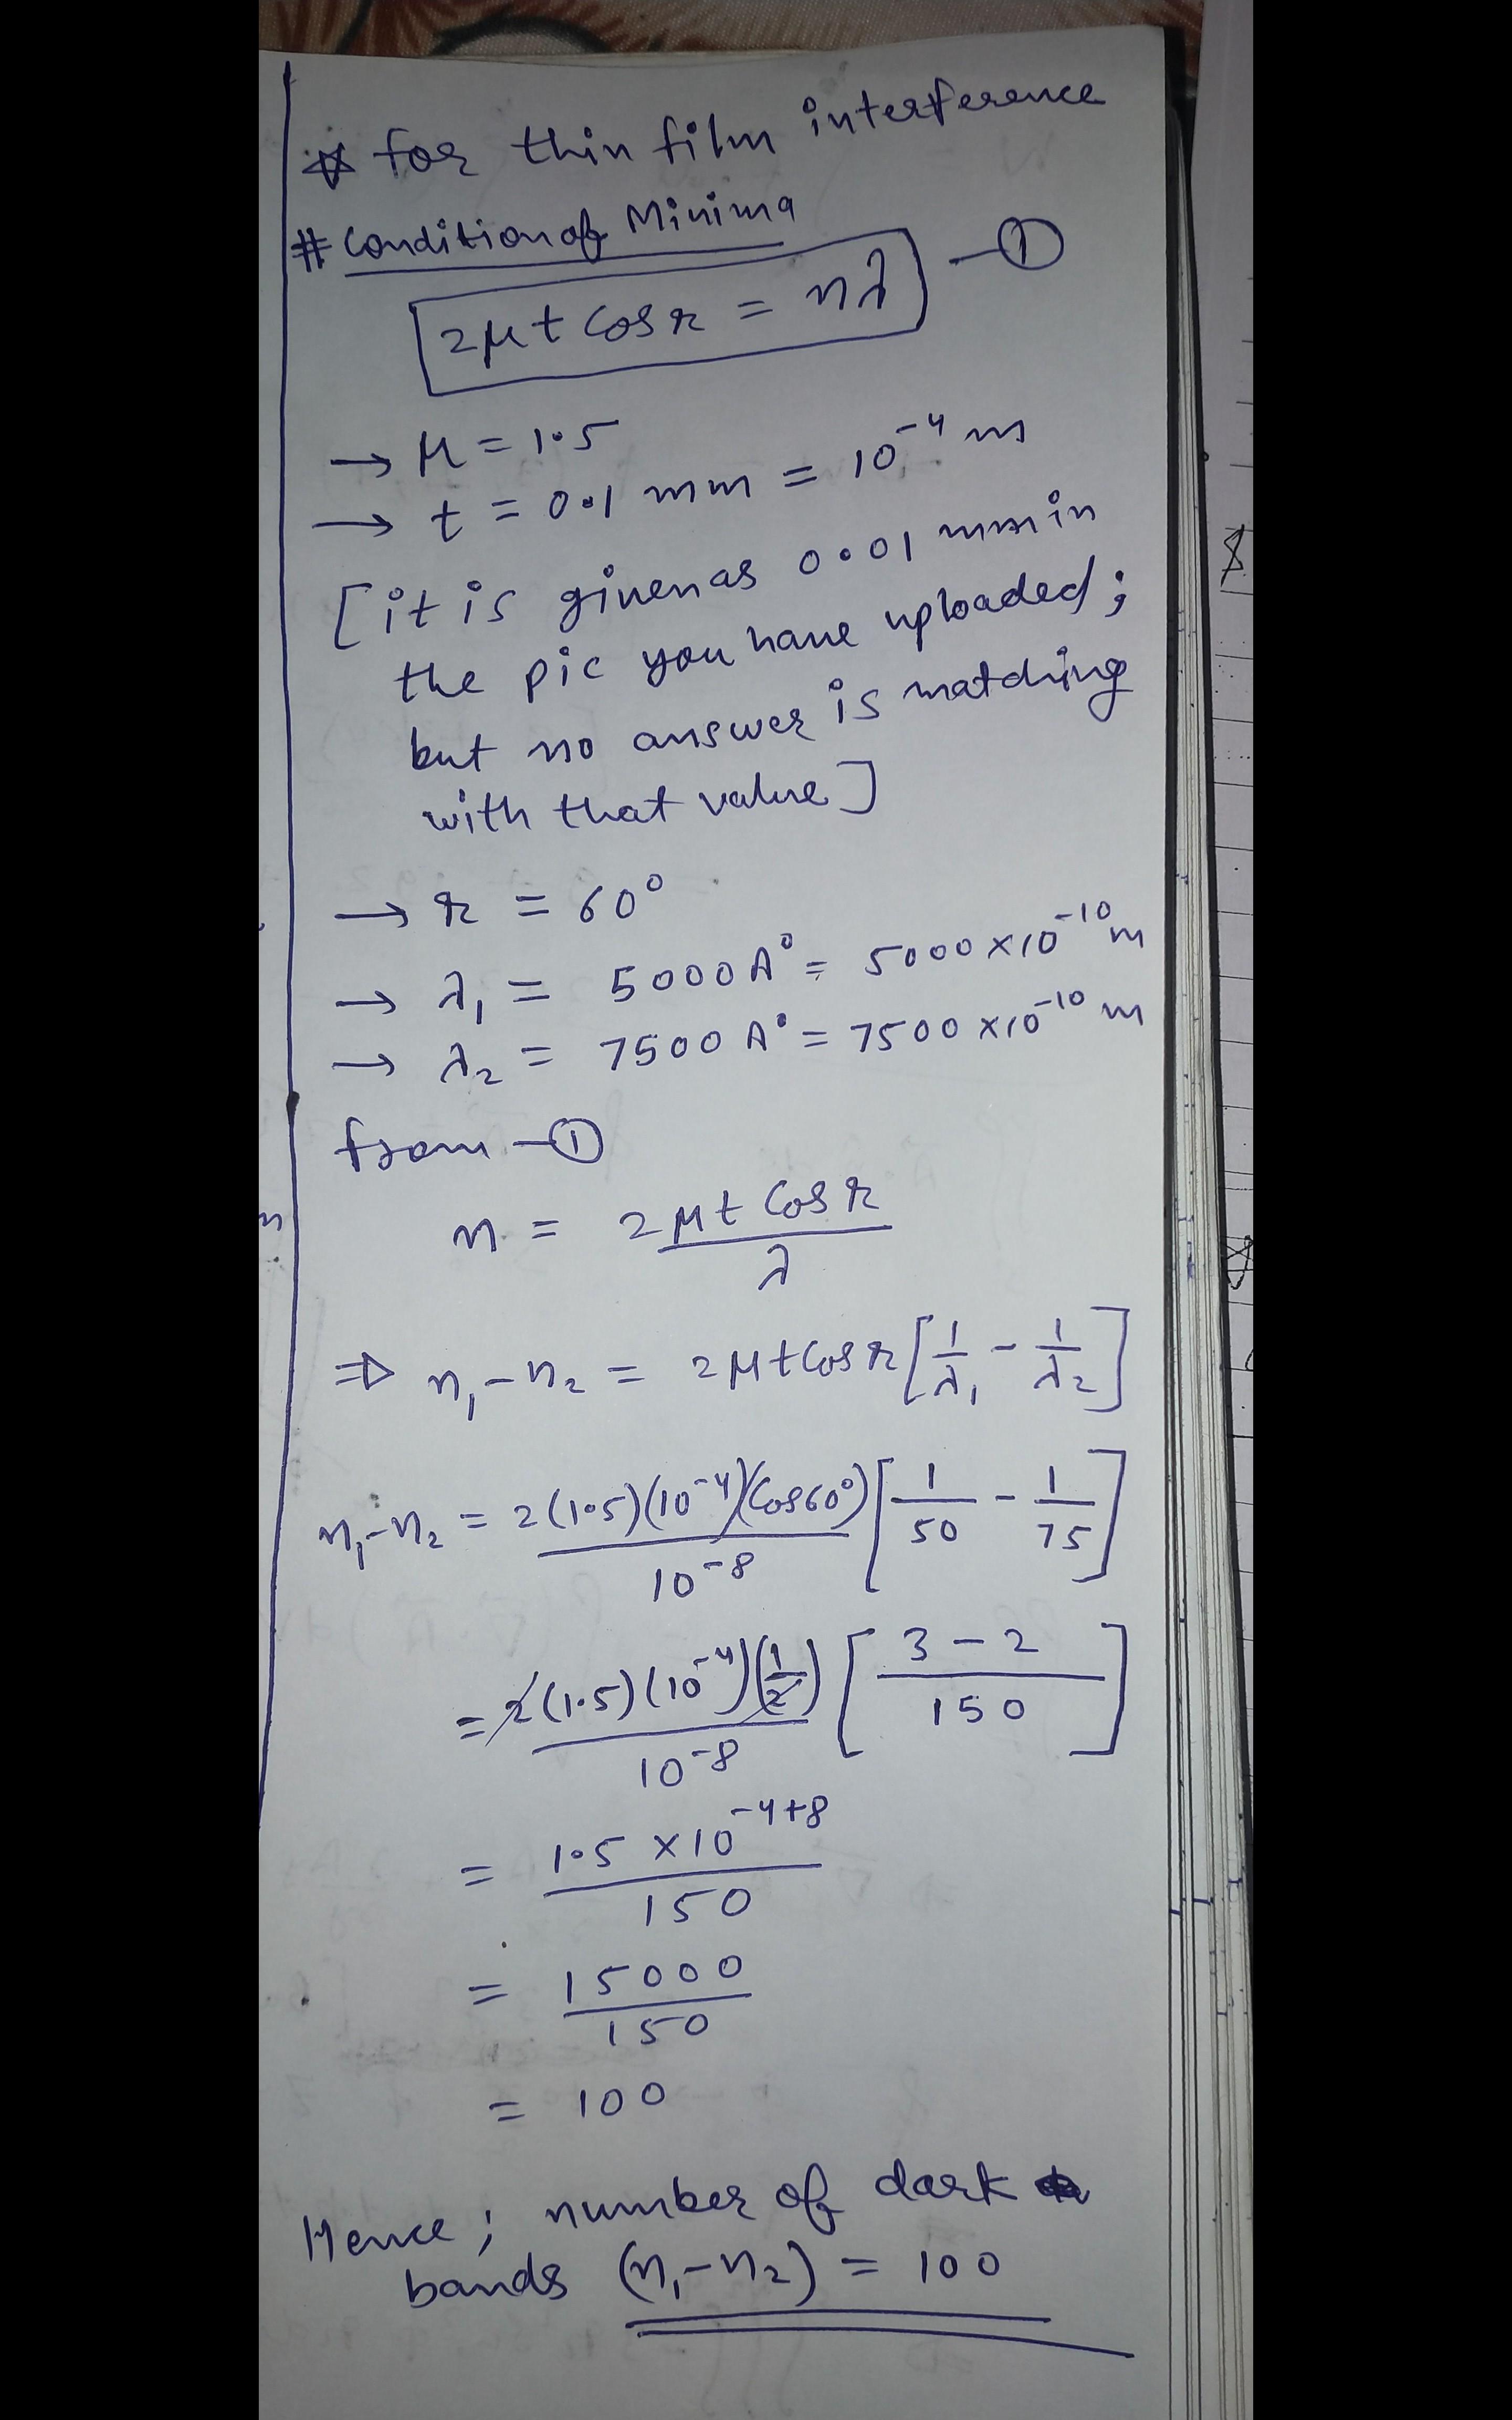 ☆ for thin film interference
# Condition of Minima
2μt cos r = nλ —①
→ μ = 1.5
→ t = 0.1 mm = 10⁻⁴ m
[it is given as 0.01 mm in
the pic you have uploaded;
but no answer is matching
with that value]
→ r = 60°
→ λ₁ = 5000 A° = 5000 × 10⁻¹⁰ m
→ λ₂ = 7500 A° = 7500 × 10⁻¹⁰ m
from —①
n = 2μt cos r / λ
⇒ n₁ - n₂ = 2μt cos r [1/λ₁ - 1/λ₂]
n₁ - n₂ = 2(1.5)(10⁻⁴)(cos 60°) / 10⁻⁸ [1/50 - 1/75]
= 2(1.5)(10⁻⁴)(1/2) / 10⁻⁸ [3 - 2 / 150]
= 1.5 × 10⁻⁴⁺⁸ / 150
= 15000 / 150
= 100
Hence; number of dark
bands (n₁ - n₂) = 100